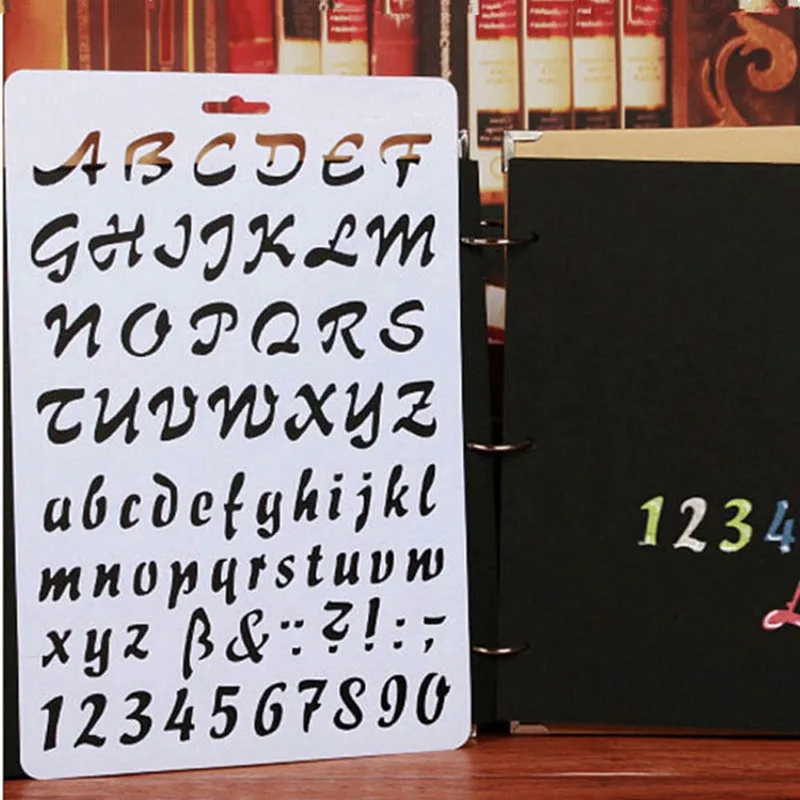 A B C D E F
G H I J K L M
N O P Q R S
T U V W X Y Z
a b c d e f g h i j k l
m n o p q r s t u v w
x y z ß & : ? ! : ;
1 2 3 4 5 6 7 8 9 0
1 2 3 4